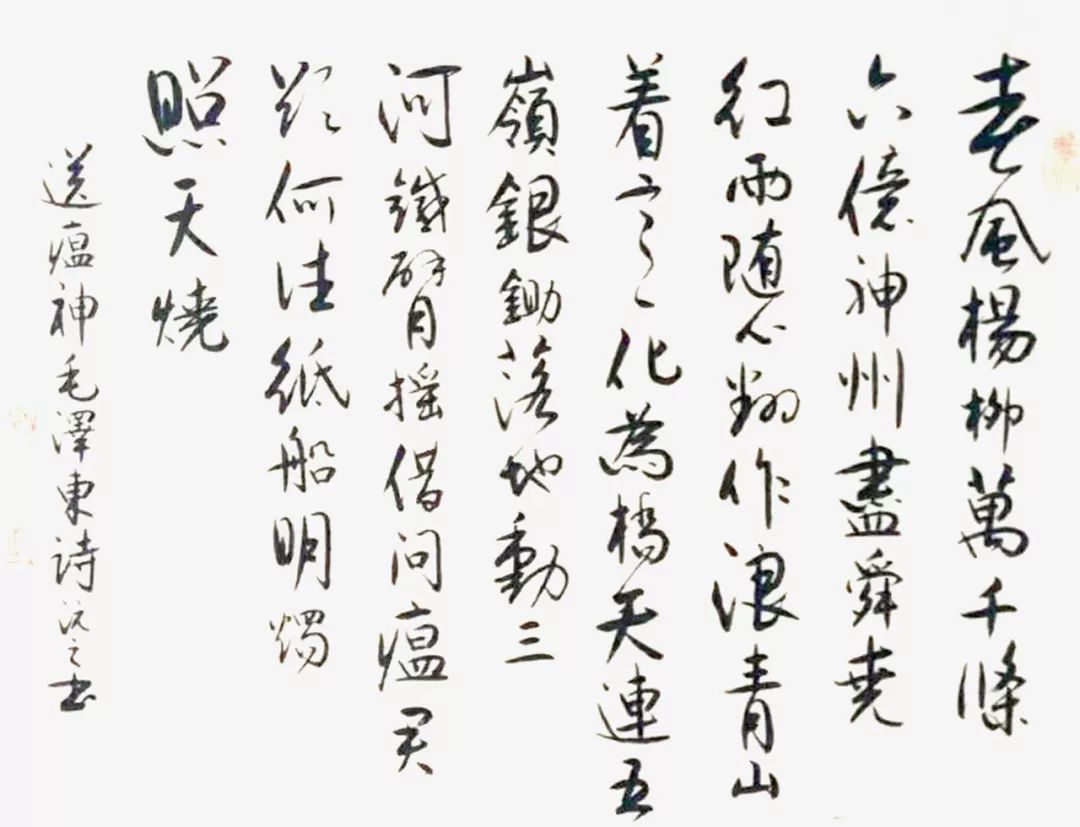 春風楊柳萬千條
六億神州盡舜堯
红雨随心翻作浪青山
着意化為橋天連五
嶺銀鋤落地動三
河鐵臂摇借问瘟君
欲何往紙船明燭
照天燒
送瘟神毛澤東詩之书